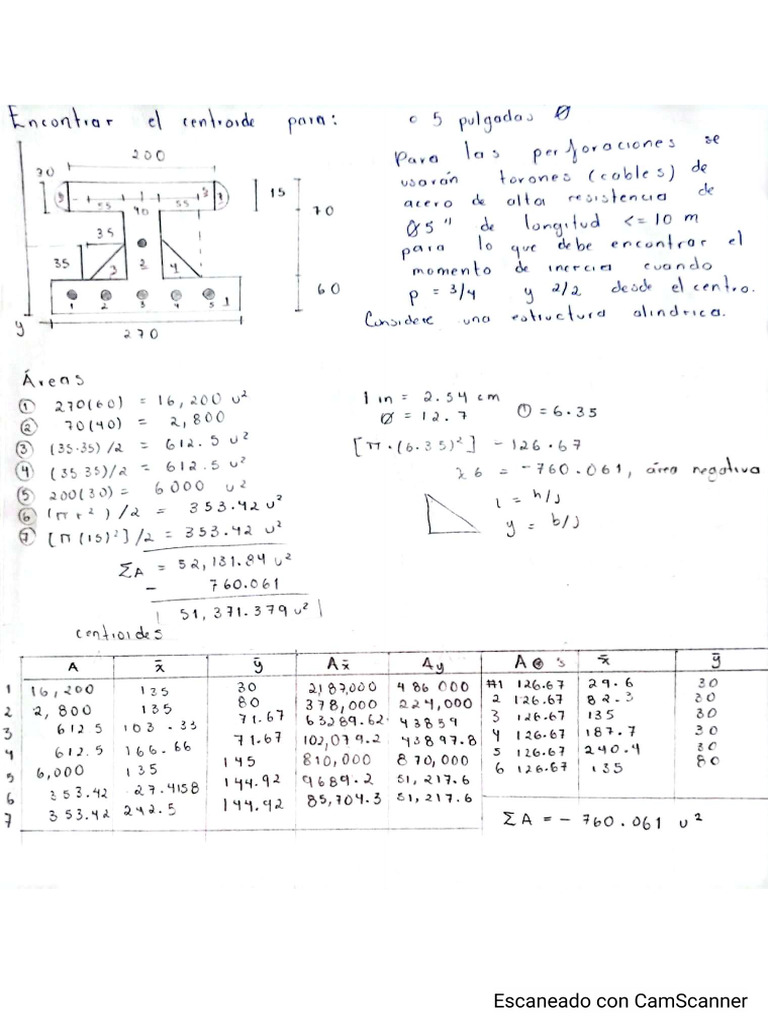 Encontrar el centroide para:
o 5 pulgadas Ø
Para las perforaciones se
usarán torones (cables) de
acero de alta resistencia de
Ø5" de longitud <= 10 m
para lo que debe encontrar el
momento de inercia cuando
p = 3/4 y 2/2 desde el centro.
Considere una estructura cilindrica.
200
30
55 40 55
15
70
35
35
3 2 4
60
1 2 3 4 5 1
y
270
Áreas
① 270(60) = 16,200 u²
② 70(40) = 2,800
③ (35·35)/2 = 612.5 u²
④ (35 35)/2 = 612.5 u²
⑤ 200(30) = 6000 u²
⑥ (π r²)/2 = 353.42 u²
⑦ [π(15)²]/2 = 353.42 u²
ΣA = 52,131.84 u²
- 760.061
51,371.379 u²
1 in = 2.54 cm
Ø = 12.7 r = 6.35
[π·(6.35)²] -126.67
x 6 = -760.061, área negativa
y = b/3
centroides
A x̄ ȳ Ax̄ Ay A s x̄ ȳ
1 16,200 135 30 2,187,000 486 000 #1 126.67 29.6 30
2 2,800 135 80 378,000 224,000 2 126.67 82.3 30
3 612.5 103.33 71.67 63289.62 43859 3 126.67 135 30
4 612.5 166.66 71.67 102,079.2 43897.8 4 126.67 187.7 30
5 6,000 135 145 810,000 870,000 5 126.67 240.4 30
6 353.42 27.4158 144.92 9689.2 51,217.6 6 126.67 135 80
7 353.42 242.5 144.92 85,704.3 51,217.6
ΣA = - 760.061 u²
Escaneado con CamScanner